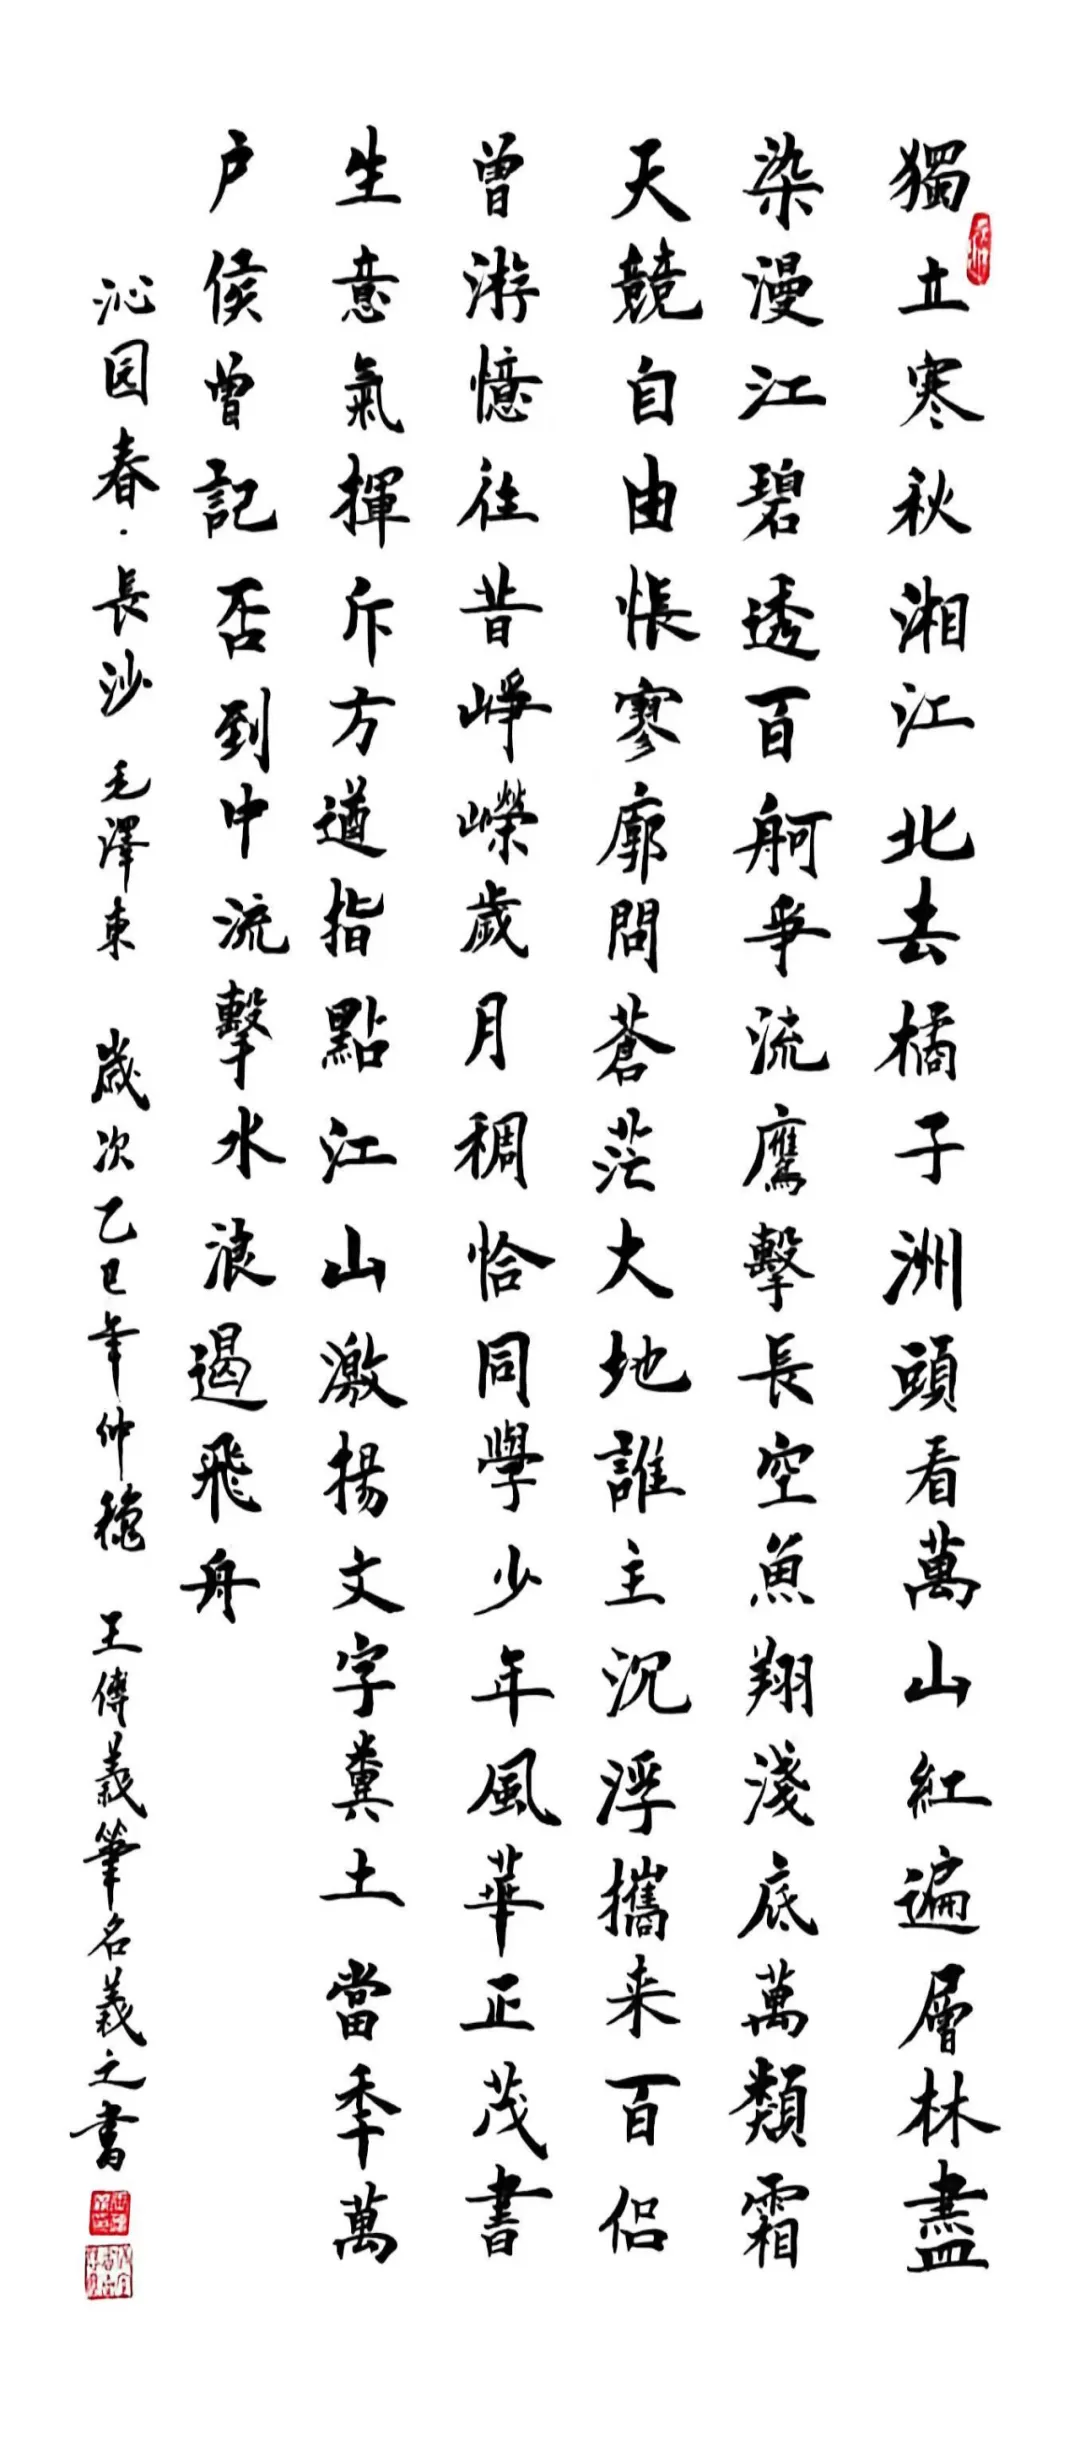 獨立寒秋湘江北去橘子洲頭看萬山紅遍層林盡
染漫江碧透百舸爭流鷹擊長空魚翔淺底萬類霜
天競自由悵寥廓問蒼茫大地誰主沉浮攜来百侣
曾游憶往昔崢嶸歲月稠恰同學少年風華正茂書
生意氣揮斥方遒指點江山激揚文字糞土當年萬
户侯曾記否到中流擊水浪遏飛舟
沁园春·長沙 毛澤東 歲次乙巳年仲穐 王傳義筆名義之書